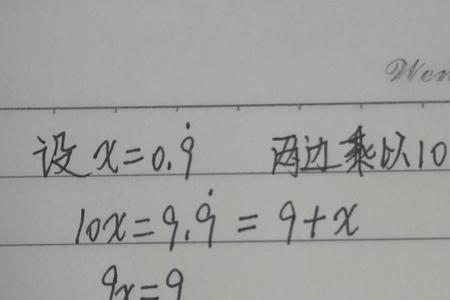 设 x=0.9̇ 两边乘以10
10x=9.9̇ = 9+x
9x=9